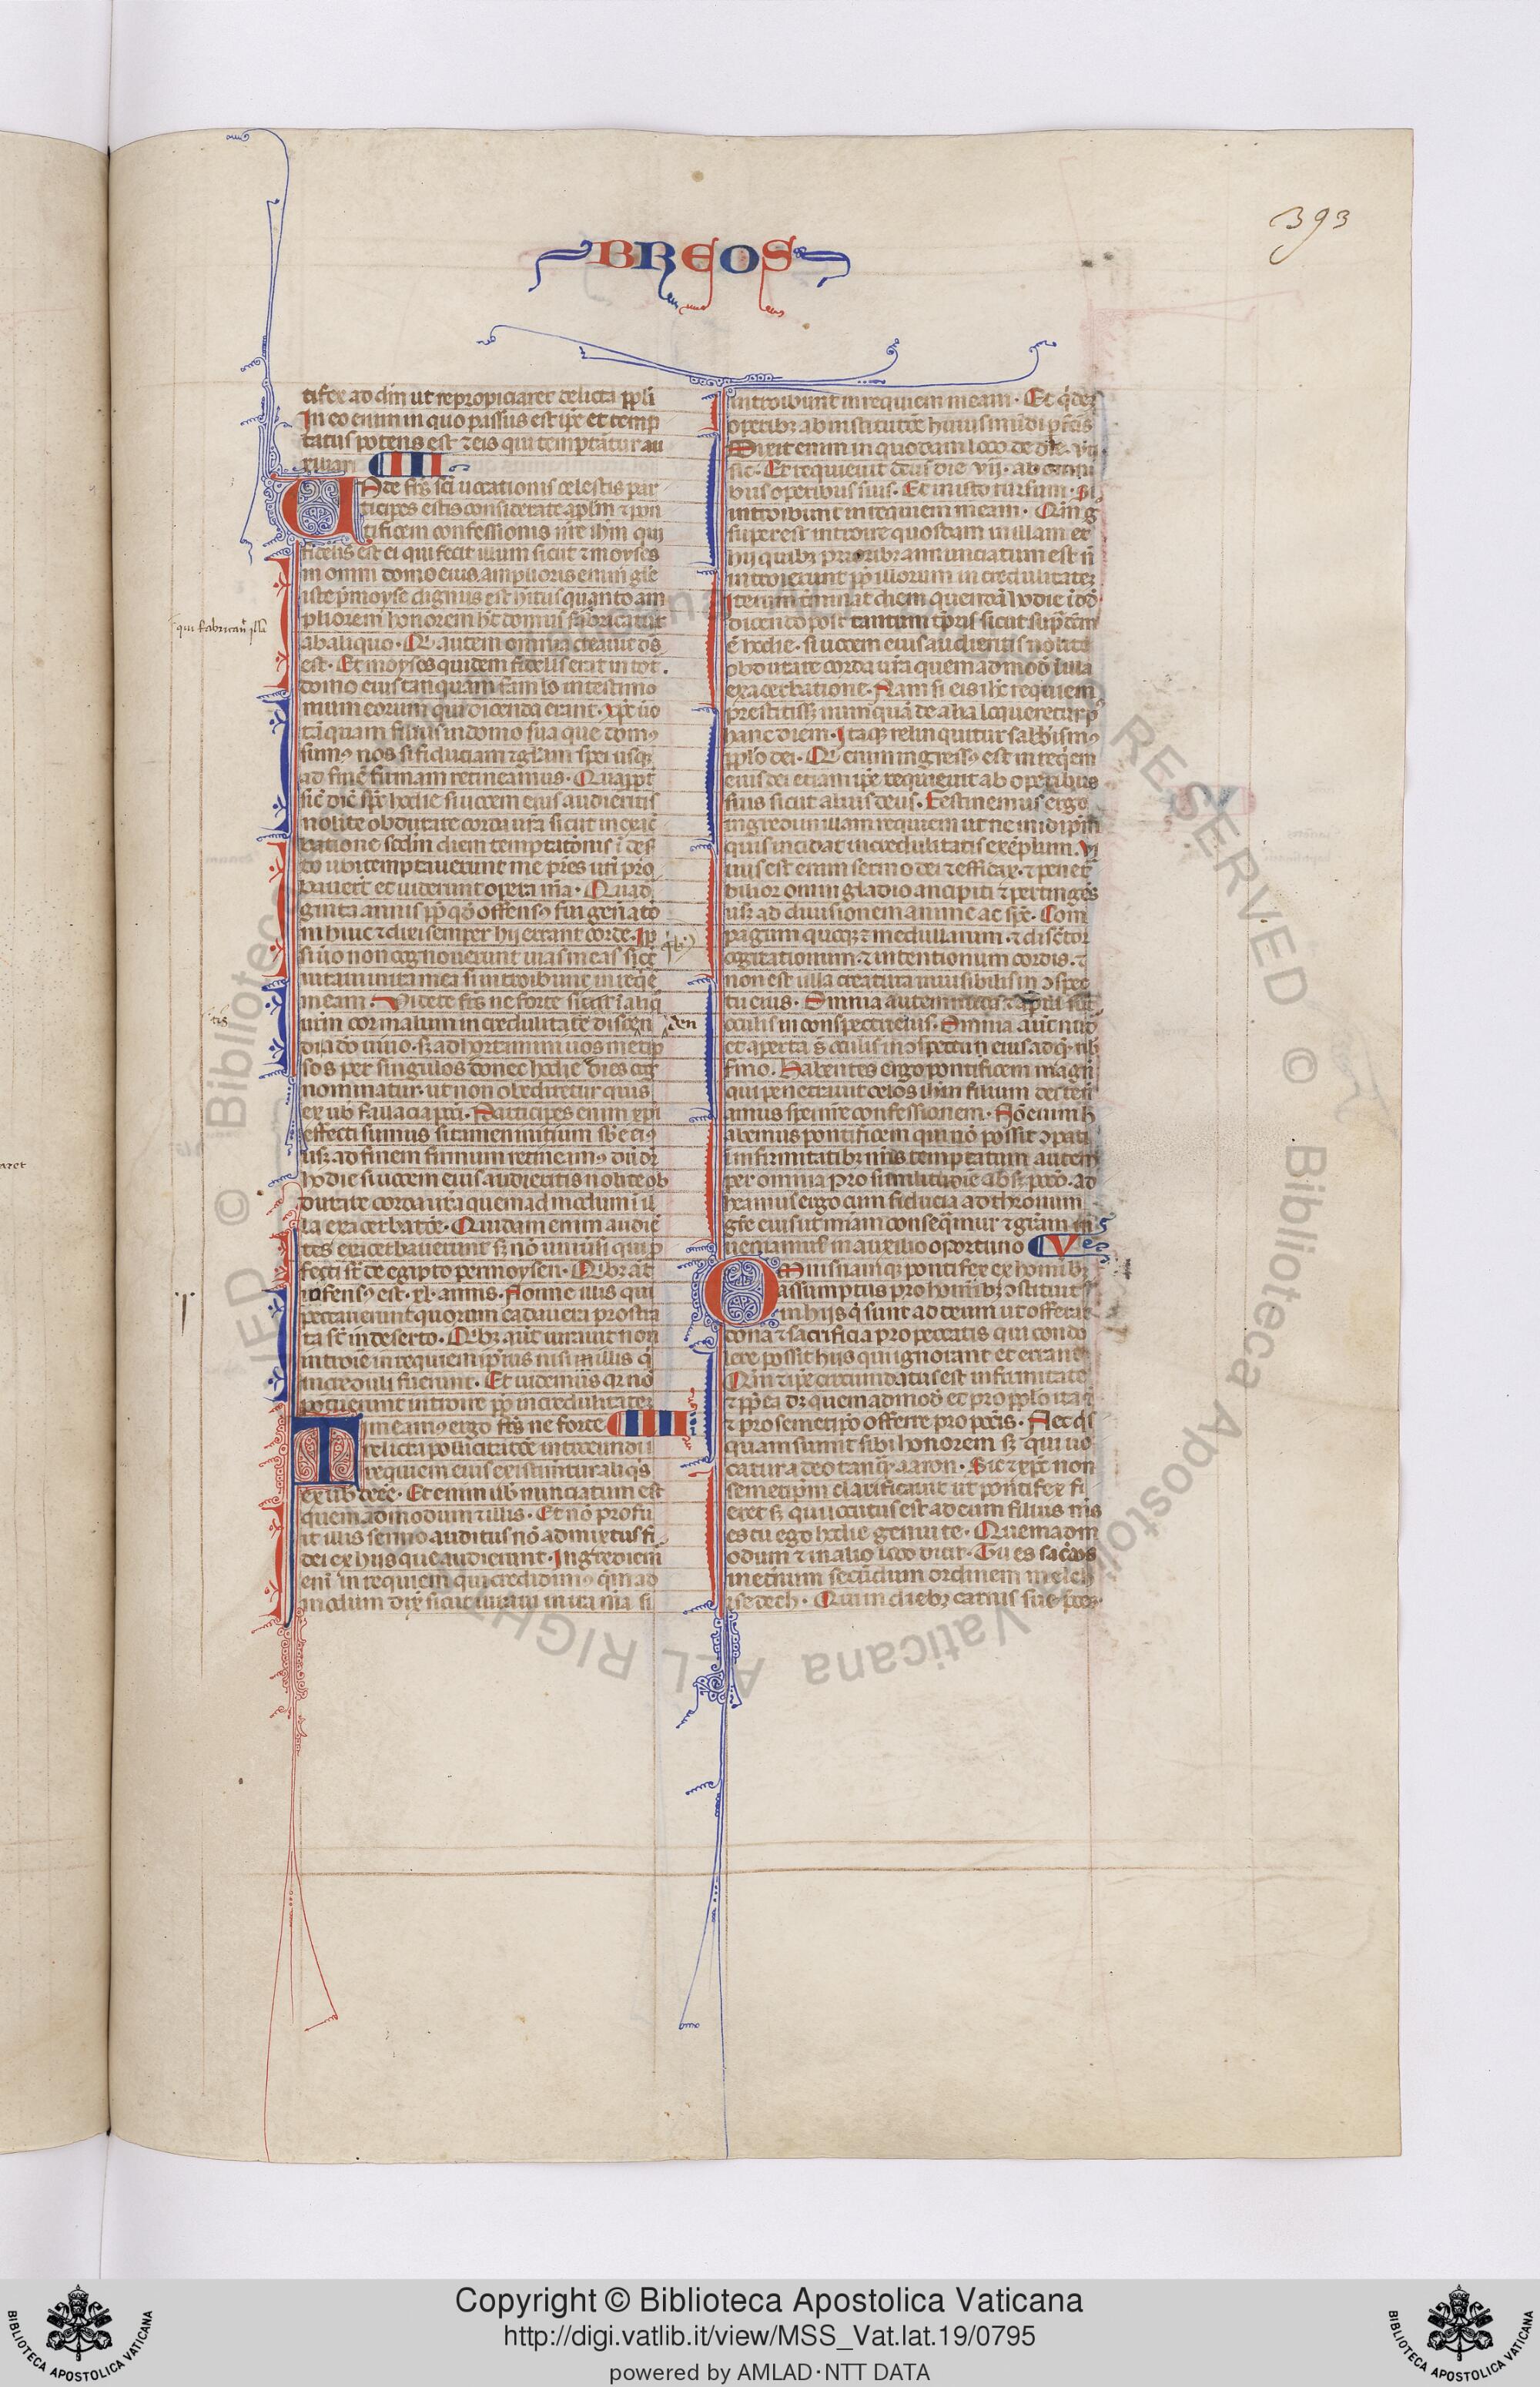 393
BREOS
tifex ad dm̄ ut repropiciaret delicta ppl̄i
In eo enim in quo passus est ip̄e et temp
tatus potens est ⁊ eis qui temptātur au
xiliari III
Vnde fr̄s sc̄i uocationis celestis par
ticipes estis considerate apl̄m ⁊ pon
tificem confessionis nr̄e ih̄m qui
fidelis est ei qui fecit illum sicut ⁊ moyses
in omni domo eius amplioris enim gl̄e
iste p̄ moyse dignus est h̓itus quanto am
pliorem honorem h̓t domus fabricatur
qui fabricau̓ illā
ab aliquo. Qī autem omnia creauit ds̄
est. Et moyses quidem fidelis erat in tot.
domo eius tanquam famls̄ in testimo
nium eorum qui dicenda erant. xp̄c uō
tāquam filius in domo sua que domꝰ
sumꝰ nos si fiduciam ⁊ gl̄am spei usqꝫ
ad finē firmam retineamus. Quappt̓
sic̄ dic̄ sp̄c hodie si uocem eius audieritis
nolite obdurate corda ur̄a sicut in exac̓
batione scdm̄ diem temptatōnis ī des̓
to ubi temptauerunt me pr̄es ur̄i pro
bauer̄t et uiderunt opera m̄a. Quad
ginta annis pp̄ qd̓ offensꝰ fui gen̓atō
ni huic ⁊ dixi semper hij errant corde. Ip̄
si uō non cognouerunt uias meas sic̄
iuraui in ira mea si introibunt in req̓ē
meam. Videte fr̄s ne forte sit ī aliq̄
urm̄ cor malum incredulitatē discen
den
di a dō uiuo. sꝫ adhortamini uos metip̄
sos per singulos donec hodie dies cog̓
nominatur. ut non obduretur quis
ex uob̄ fallacia pcc̄i. Participes enim xp̄i
effecti sumus si tamen initium sb̄e eiꝰ
usqꝫ ad finem firmum retineamꝰ dū dr̄
hodie si uocem eius audieritis nolite ob
durare corda ur̄a quemadmodum ī il
la exacerbatōe. Quidam enim audiē
tes exacerbauerunt sꝫ nō uniuersi qui p
fecti st̄ de egipto per moysen. Qībꝫ aūt
offensꝰ est. xl. annis. Nonne illis qui
peccauerunt quorum cadauera prostra
ta st̄ in deserto. Qībꝫ aūt iurauit non
introire in requiem ip̄ius nisi illis q̄
increduli fuerunt. Et uidemus qr̄ nō
potuerunt introire pp̄ incredulitatem
Timeamꝰ ergo fr̄s ne forte IIII
relicta pollicitatōe introeundi ī
requiem eius existimetur aliq̓s
ex uob̄ deēe. Etenim nob̄ nunciatum est
quemadmodum ⁊ illis. Et nō profu
it illis sermo auditus nō admixtus fi
dei ex hijs que audierunt. Ingrediem̓
enī in requiem qui credidimꝰ quēad
modum dix̓ sicut iuraui in ira mea si
introibunt in requiem meam. Et q̓dē
operibꝫ ab institutōe huius mūdi p̓fectis
Dixit enim in quodam loco de die. vij.
sic. Et requieuit deus die vij. ab omni
bus operibus suis. Et in isto rursum. Si
introibunt in requiem meam. Qm̄ g̓
superest introire quosdam in illam et
hij quibꝫ prioribꝫ annunciatum est n̄
introierunt pp̄ illorum incredulitatē
Iterum t̓minat diem quendā hodie ī dd̓
dicendo post tantum tp̄ris sicut sup̓ dc̄m
ē hodie. si uocem eius audieritis nolite
obdurate corda ur̄a quemadmodū ī illa
exacerbatione. Nam si eis ih̄c requiem
prestitisset nunquā de alia loqueretur p̓
hanc diem. Itaqꝫ relinquitur sabb̄ismꝰ
pplo dei. Qī enim ingressꝰ est in req̓em
eius dei etiam ip̄e requieuit ab operibus
suis sicut a suis deus. Festinemus ergo
ingredi in illam requiem ut ne in idip̄m
quis incidat incredulitatis exēplum. Vi
uus est enim sermo dei ⁊ efficax. ⁊ penet
bilior omni gladio ancipiti ⁊ pertingēs
usqꝫ ad diuisionem anime ac sp̄c. Com
pagum quoqꝫ ⁊ medullarum. ⁊ disc̄tor
cogitationum. ⁊ intentionum cordis. ⁊
non est ulla creatura inuisibilis in ɔspec
tu eius. Omnia autem nuda ⁊ ap̓ta sūt
oculis in conspectu eius. Omnia aūt nud̓
et aperta s̄ oculis in ɔspectu eius ad q̓. nb̄
s̓mo. Habentes ergo pontificem magn̄
qui penetrauit celos ih̄m filium dei ten
amus spei nr̄e confessionem. Nō enim h̓
abemus pontificem qui nō possit ɔpati
infirmitatibꝫ nr̄is temptatum autem
per omnia pro similitudīe absqꝫ pcc̄o. ad
eamus ergo cum fiducia ad thronum
gr̄e eius ut miam̄ consequamur ⁊ gr̄am in
ueniamus in auxilio oportuno V
Omnis namqꝫ pontifex ex homībꝫ
assumptus pro homībꝫ ɔstituit̓
in hijs q̄ sunt ad deum ut offerat
dona ⁊ sacrificia pro peccatis qui condo
lere possit hijs qui ignorant et errant
Qm̄ ⁊ ip̄e circundatus est infirmitate
⁊ pp̄ea dꝫ quemadmodū et pro pplo ita
⁊ pro semetip̄o offerre pro pcc̄is. Nec q̓s
quam sumit sibi honorem sꝫ qui uo
catur a deo tanq̄ aaron. Sic ⁊ xp̄c non
semetip̄m clarificauit ut pontifex fi
eret sꝫ qui locutus est ad eum filius ms̄
es tu ego hodie genui te. Quemadm
odum ⁊ in alio loco dicit. Tu es sac̓dos
in et̓num secundum ordinem melch
isedech. Qui in diebꝫ carnis sue p̓ces
Copyright © Biblioteca Apostolica Vaticana
http://digi.vatlib.it/view/MSS_Vat.lat.19/0795
powered by AMLAD·NTT DATA
BIBLIOTECA APOSTOLICA VATICANA
BIBLIOTECA APOSTOLICA VATICANA